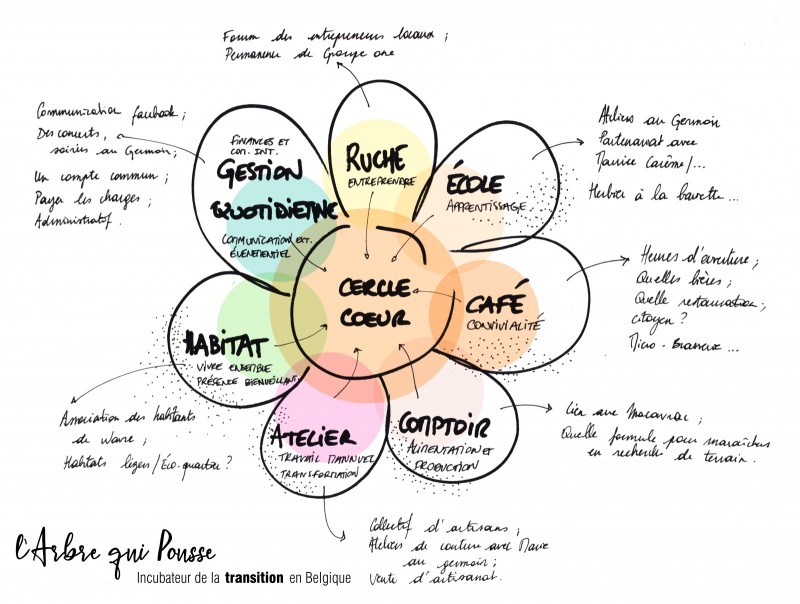 Forum des entrepreneurs locaux ;
Permanence de Groupe one
Communication facebook ;
Des concerts,
soirées au Germoir ;
Un compte commun ;
Payer les charges ;
Administratif.
FINANCES ET
CON. INT.
GESTION
QUOTIDIENNE
COMMUNICATION EXT.
ÉVENEMENTIEL
RUCHE
ENTREPRENDRE
ÉCOLE
APPRENTISSAGE
Ateliers au Germoir
Partenariat avec
Maurice Carême/...
Herbier à la ...
CERCLE
COEUR
CAFÉ
CONVIVIALITÉ
Heures d'ouverture ;
Quelles bières ;
Quelle restauration ;
citoyen ?
Micro-Brasserie ...
HABITAT
VIVRE ENSEMBLE
PRÉSENCE BIENVEILLANTE
Association des habitants
de Wavre ;
Habitats légers/Éco-quartier ?
ATELIER
TRAVAIL MANUEL
TRANSFORMATION
COMPTOIR
ALIMENTATION ET
PRODUCTION
Lien avec Macavrac ;
Quelle formule pour maraîchers
en recherche de terrain.
Collectif d'artisans ;
Ateliers de couture avec Marie
au germoir ;
Vente d'artisanat.
l'Arbre qui Pousse
Incubateur de la transition en Belgique